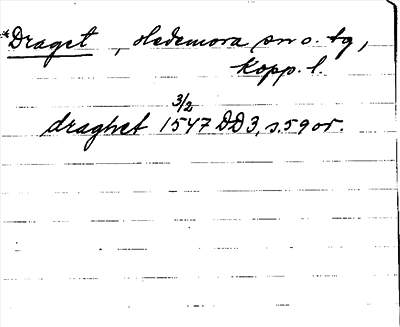 *Draget, Hedemora sn o. tg,
Kopp. l.
3/2
draghet 1547 DD3, s. 59 or.